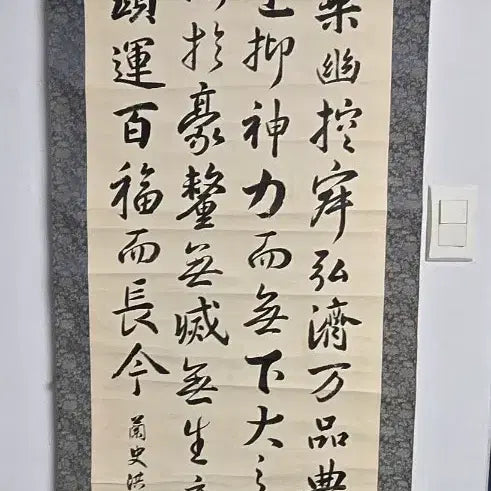 乘幽控寂弘濟万品典
抑神力而無下大之
於豪釐無滅無生
運百福而長今
蘭史洪